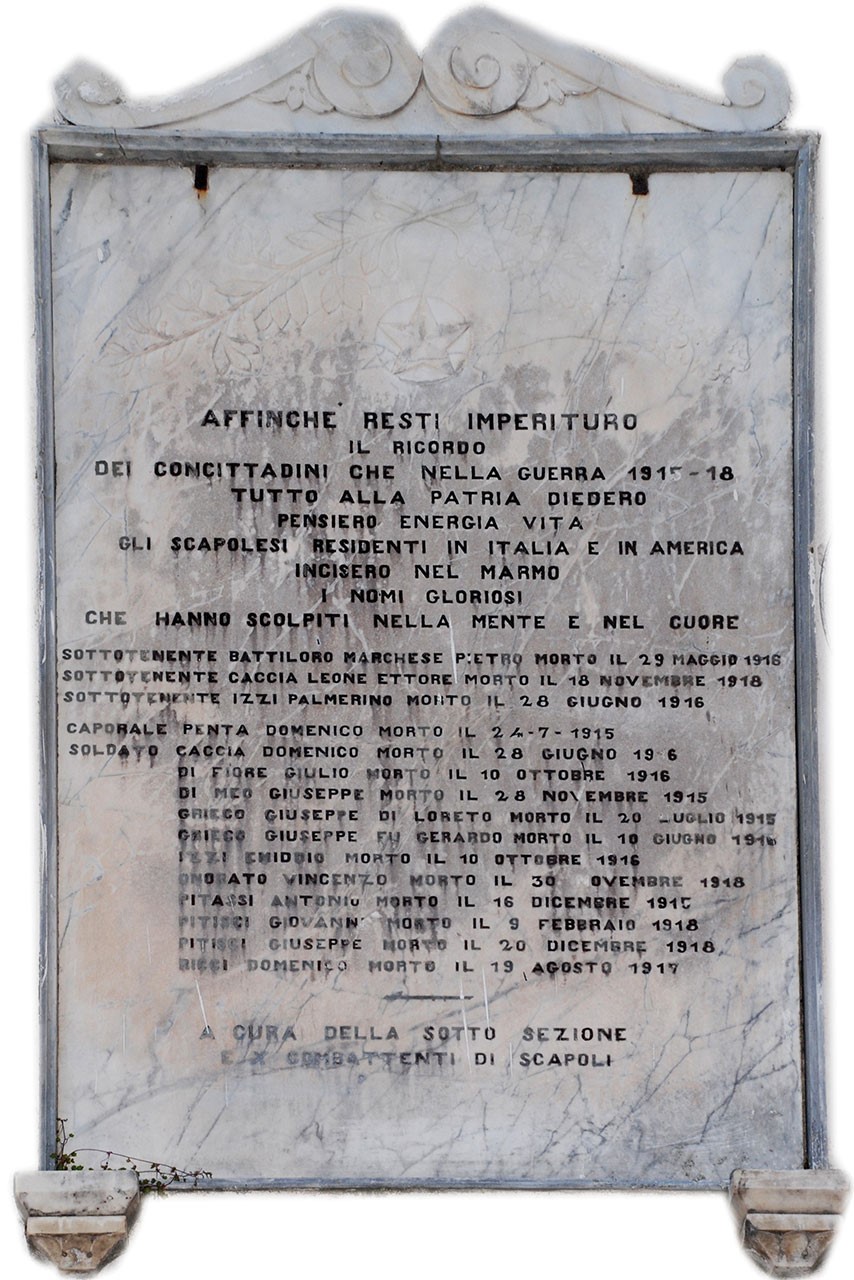 AFFINCHÈ RESTI IMPERITURO
IL RICORDO
DEI CONCITTADINI CHE NELLA GUERRA 1915-18
TUTTO ALLA PATRIA DIEDERO
PENSIERO ENERGIA VITA
GLI SCAPOLESI RESIDENTI IN ITALIA E IN AMERICA
INCISERO NEL MARMO
I NOMI GLORIOSI
CHE HANNO SCOLPITI NELLA MENTE E NEL CUORE
SOTTOTENENTE BATTILORO MARCHESE PIETRO MORTO IL 29 MAGGIO 1916
SOTTOTENENTE CACCIA LEONE ETTORE MORTO IL 18 NOVEMBRE 1918
SOTTOTENENTE IZZI PALMERINO MORTO IL 28 GIUGNO 1916
CAPORALE PENTA DOMENICO MORTO IL 24-7-1915
SOLDATO CACCIA DOMENICO MORTO IL 28 GIUGNO 19 6
DI FIORE GIULIO MORTO IL 10 OTTOBRE 1916
DI MEO GIUSEPPE MORTO IL 28 NOVEMBRE 1915
GRIECO GIUSEPPE DI LORETO MORTO IL 20 LUGLIO 1915
GRIECO GIUSEPPE FU GERARDO MORTO IL 10 GIUGNO 1916
IZZI EMIDDIO MORTO IL 10 OTTOBRE 1916
ONORATO VINCENZO MORTO IL 30 NOVEMBRE 1918
PITASSI ANTONIO MORTO IL 16 DICEMBRE
PITISCI GIOVANNI MORTO IL 9 FEBBRAIO 1918
PITISCI GIUSEPPE MORTO IL 20 DICEMBRE 1918
RICCI DOMENICO MORTO IL 19 AGOSTO 1917
A CURA DELLA SOTTO SEZIONE
E X COMBATTENTI DI SCAPOLI